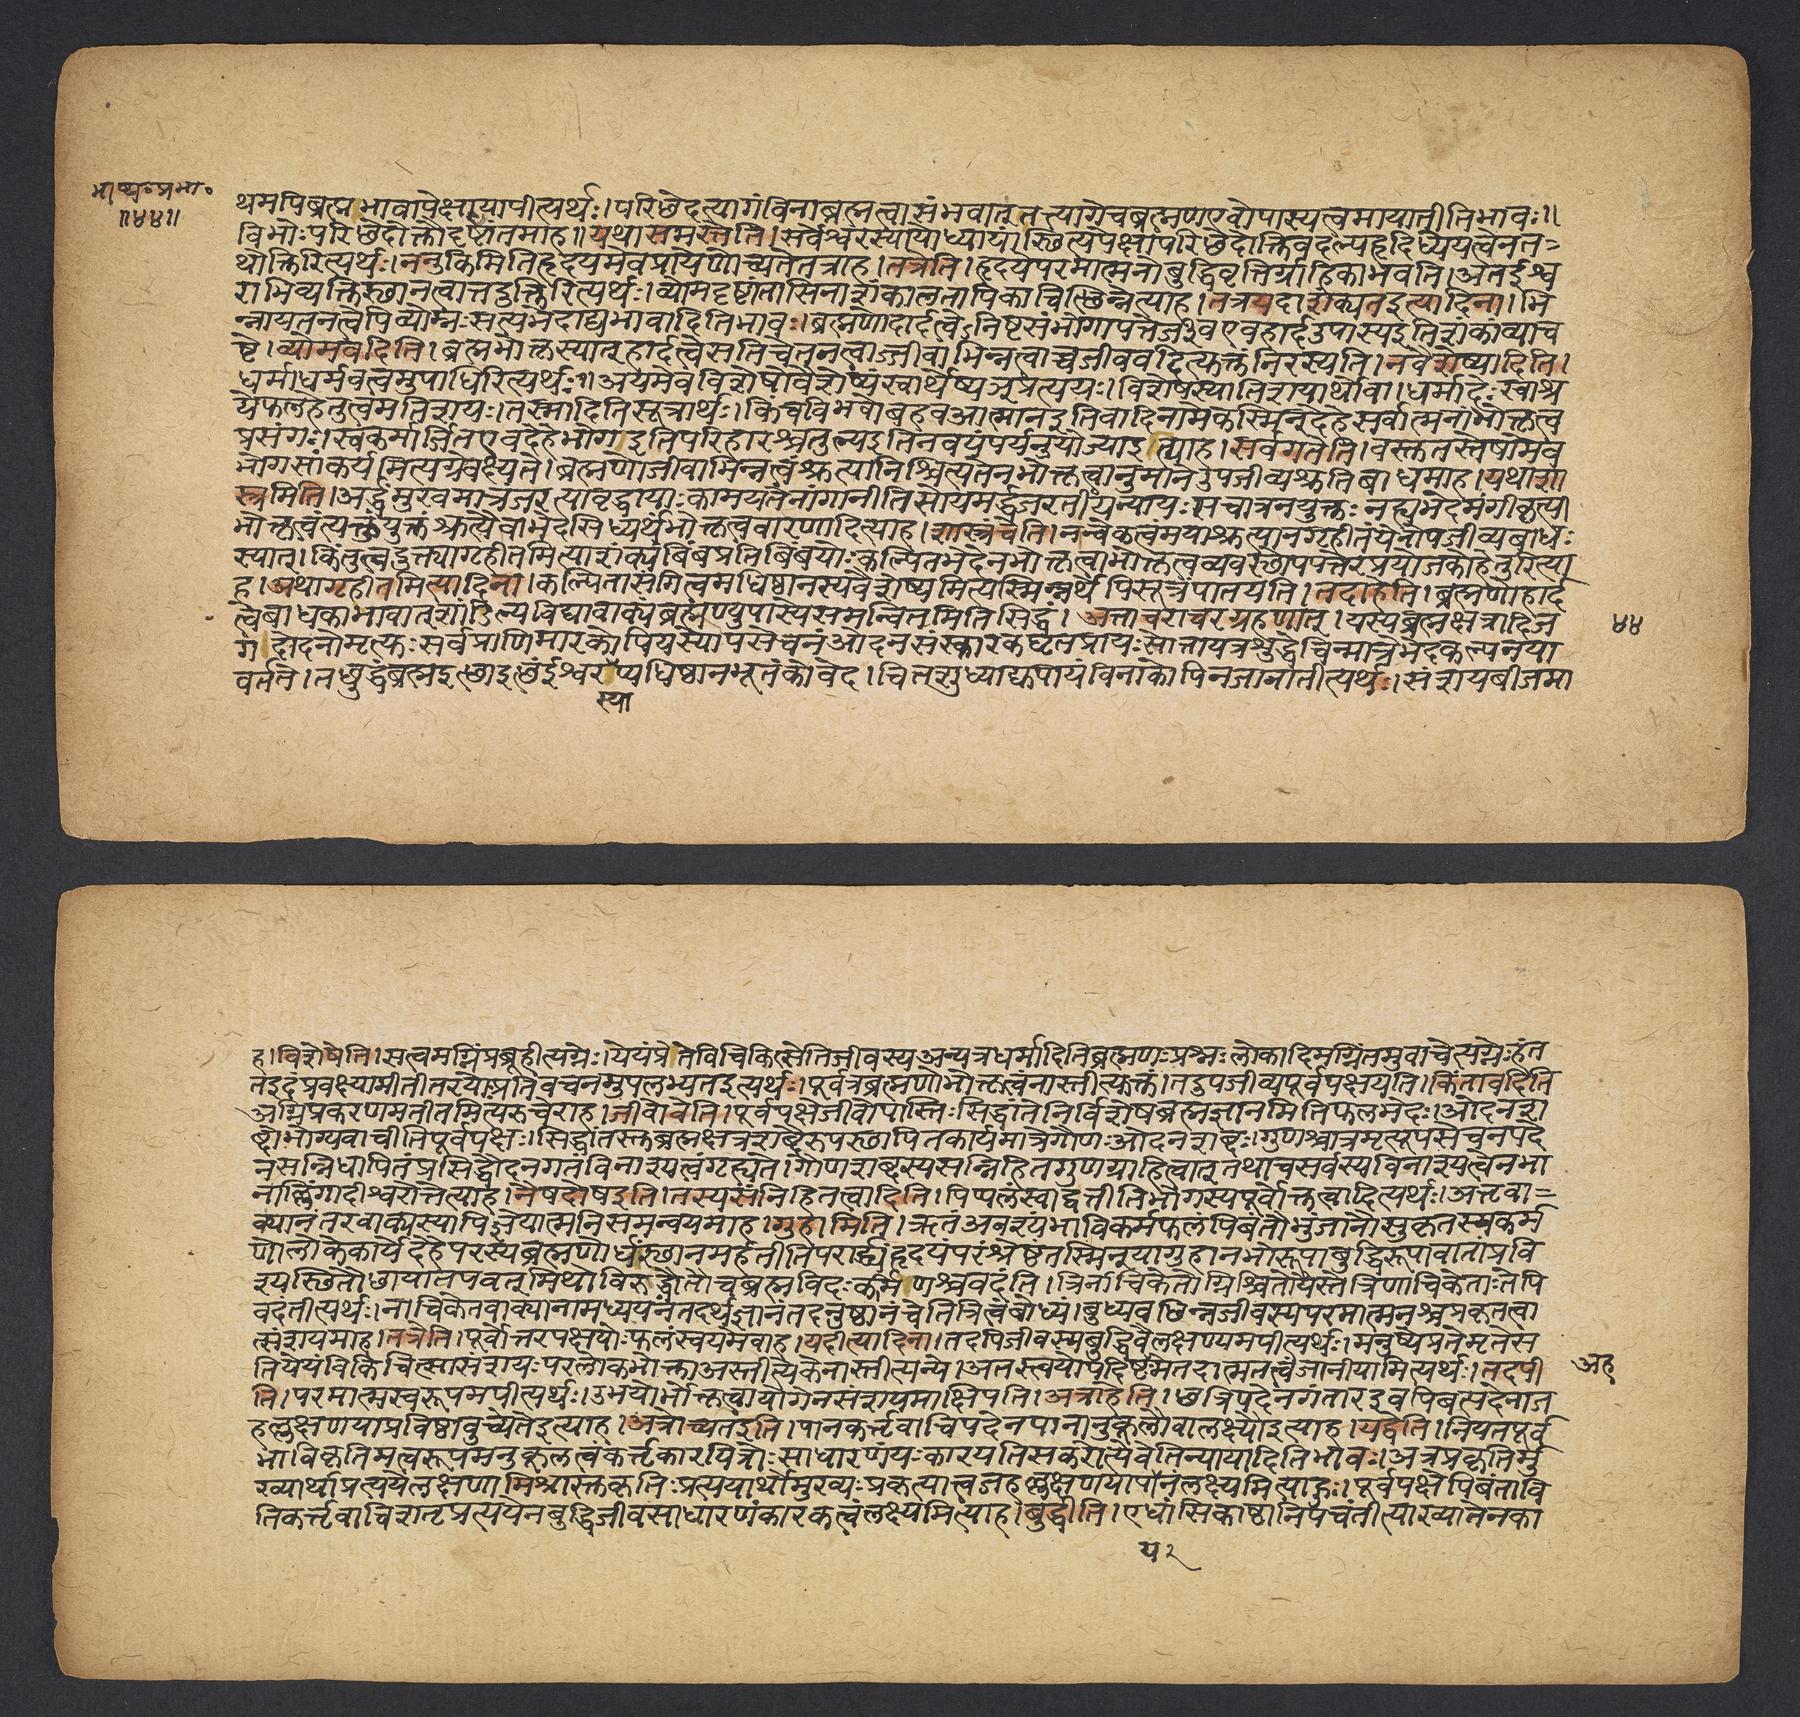 भाष्य०प्रभा०
॥४४॥
थमपिब्रह्मभावापेक्षायापीत्यर्थः।परिछेदत्यागंविनाब्रह्मत्वासंभवात्तत्त्यागेचब्रह्मणएवोपास्यत्वमायातीतिभावः॥
विभोःपरिछेदोक्तौदृष्टांतमाह॥यथासमस्तेति।सर्वेश्वरस्यायोध्यायांस्छित्यपेक्षापरिछेदोक्तिवदल्पहृदिध्येयत्वेनत-
थोक्तिरित्यर्थः।ननुकिमितिहृदयमेवप्रायेणोच्यतेतत्राह।तत्रेति।हृदयेपरमात्मनोबुद्धिवृत्तिर्ग्राहिकाभवति।अतईश्व
राभिव्यक्तिस्छानत्वात्तदुक्तिरित्यर्थः।व्योमदृष्टांतासिनाशंकालतापिकाचिछिन्नेत्याह।तत्रयदाशंक्यतइत्यादिना।भि
न्नायतनत्वेपिव्योम्नःसत्यभेदाद्यभावादितिभावः।ब्रह्मणोहार्दत्वेऽनिष्टसंभोगापत्तेर्जीवएवहार्दउपास्यइतिशंकांव्याच
ष्टे।व्योमवदिति।ब्रह्मभोक्तृस्यात्हार्दत्वेसतिचेतनत्वाज्जीवाभिन्नत्वाच्चजीववदित्युक्तंनिरस्यति।नवैशेष्यादिति।
धर्माधर्मवत्वमुपाधिरित्यर्थः॥अयमेवविशेषोवैशेष्यंस्वार्थेष्यञ्प्रत्ययः।विशेषस्यातिशयार्थोवा।धर्मादेःस्वाश्र
येफलहेतुत्वमतिशयः।तस्मादितिसूत्रार्थः।किंचविभवोबहवआत्मानइतिवादिनामेकस्मिन्देहेसर्वात्मनांभोक्तृत्व
प्रसंगः।स्वकर्मार्जितएवदेहेभोगइतिपरिहारश्चतुल्यइतिनवयंपर्यनुयोज्याइत्याह।सर्वगतेति।वस्तुतस्तेषामेव
भोगसांकर्यमित्यग्रेवक्ष्यते।ब्रह्मणोजीवाभिन्नत्वंश्रुत्यानिश्चित्यतेनभोक्तृत्वानुमानेउपजीव्यश्रुतिबाधमाह।यथाशा
स्त्रमिति।अर्द्धंमुखमात्रंजरत्यावृद्धायाःकामयतेनांगानीतिसोयमर्द्धजरतीयन्यायःसचात्रनयुक्तःनह्यभेदमंगीकृत्या
भोक्तृत्वंत्यक्तुंयुक्तंश्रुत्यैवाभेदसिध्यर्थंभोक्तृत्ववारणादित्याह।शास्त्रंचेति।नन्वेकत्वंमयाश्रुत्यानगृहीतंयेनोपजीव्यबाधः
स्यात्।किंतुत्वदुक्त्यागृहीतमित्याशंक्यबिंबप्रतिबिंबयोःकल्पितभेदेनभोक्तृत्वाभोक्तृत्वव्यवस्छोपपत्तेरप्रयोजकोहेतुरित्या
ह।अथागृहीतमित्यादिना।कल्पितासंगित्वमधिष्ठानस्यवैशेष्यमित्यस्मिन्नर्थेपिसूत्रंपातयति।तदाहेति।ब्रह्मणोहार्द
त्वेबाधकाभावात्शांडिल्यविद्यावाक्यंब्रह्मण्युपास्येसमन्वितमितिसिद्धं। अत्ताचराचरग्रहणात्।यस्यब्रह्मक्षत्रादिज
४४
गदोदनोमृत्युःसर्वप्राणिमारकोपियस्योपसेचनंओदनसंस्कारकघृतप्रायःसोत्तायत्रशुद्धेचिन्मात्रेभेदकल्पनया
वर्तते।तछुद्धंब्रह्मइछाइछंईश्वरप्यधिष्ठानभूतंकोवेद।चित्तशुध्याद्युपायंविनाकोपिनजानातीत्यर्थः।संशयबीजमा
स्या
ह।विशेषेति।सत्वमग्निंप्रब्रूहीत्यग्नेः।येयंप्रेतेविचिकित्सेतिजीवस्यअन्यत्रधर्मादितिब्रह्मणःप्रश्नःलोकादिमग्निंतमुवाचेत्यग्नेःहंत
तइदंप्रवक्ष्यामीतीतरयोःप्रतिवचनमुपलभ्यतइत्यर्थः।पूर्वत्रब्रह्मणोभोक्तृत्वंनास्तीत्युक्तं।तदुपजीव्यपूर्वपक्षयति।किंतावदिति
अग्निप्रकरणमतीतमित्यरुचेराह।जीवोवेति।पूर्वपक्षेजीवोपास्तिःसिद्धांतेनिर्विशेषब्रह्मज्ञानमितिफलभेदः।ओदनश
ब्दोभोग्यवाचीतिपूर्वपक्षः।सिद्धांतस्तुब्रह्मक्षत्रशब्दैरुपस्छापितकार्यमात्रेगौणःओदनशब्दः।गुणश्चात्रमृत्यूपसेचनपदे
नसन्निधापितंप्रसिद्धौदनगतंविनाश्यत्वंगृह्यते।गौणशब्दस्यसन्निहितगुणग्राहित्वात्तथाचसर्वस्यविनाश्यत्वेनभा
नाल्लिंगादीश्वरोत्तेत्याह।नैषदोषइति।तस्यसंनिहितत्वादिति।पिप्पलंस्वाद्वत्तीतिभोगस्यपूर्वोक्तत्वादित्यर्थः।अत्तृवा-
क्यानंतरवाक्यस्यापिज्ञेयात्मनिसमन्वयमाह।गुहामिति।ऋतंअवश्यंभाविकर्मफलंपिबंतौभुंजानौसुकृतस्यकर्म
णोलोकेकार्येदेहेपरस्यब्रह्मणोर्धंस्छानमर्हतीतिपरार्द्ध्यंहृदयंपरंश्रेष्ठंतस्मिन्यागुहानभोरूपाबुद्धिरूपावातांप्रवि
श्यस्छितौछायातपवत्मिथोविरुद्धौतौचब्रह्मविदःकर्मिणश्चवदंति।त्रिर्नाचिकेतोग्निश्चितोयैस्तेत्रिणाचिकेताःतेपि
वदंतीत्यर्थः।नाचिकेतवाक्यानामध्ययनंतदर्थज्ञानंतदनुष्ठानंचेतित्रित्वंबोध्यं।बुध्यवछिन्नजीवस्यपरमात्मनश्चप्रकृतत्वा
त्संशयमाह।तत्रेति।पूर्वोत्तरपक्षयोःफलंस्वयमेवाह।यदीत्यादिना।तदपिजीवस्यबुद्धिवैलक्षण्यमपीत्यर्थः।मनुष्येप्रेतेमृतेस
तियेयंविचिकित्सासंशयःपरलोकभोक्ताअस्तीत्येकेनास्तीत्यन्ये।अतस्त्वयोपदिष्टमेतदात्मतत्वंजानीयामित्यर्थः।तदपी
अत्र
ति।परमात्मस्वरूपमपीत्यर्थः।उभयोर्भोक्तृत्वायोगेनसंशयमाक्षिपति।अत्राहेति।छत्रिपदेनगंतारइवपिबत्पदेनाज
हल्लक्षणयाप्रविष्ठावुच्येतेइत्याह।अत्रोच्यतइति।पानकर्त्तृवाचिपदेनपानानुकूलौवालक्ष्यौइत्याह।यद्वेति।नियतपूर्व
भाविकृतिमत्वरूपमनुकूलत्वंकर्त्तृकारयित्रोःसाधारणंयःकारयतिसकरोत्येवेतिन्यायादितिभावः।अत्रप्रकृतिर्मु
ख्यार्थाप्रत्ययेलक्षणामिश्रास्तुकृतिःप्रत्ययार्थोमुख्यःप्रकृत्यात्वजहल्लक्षणयापानंलक्ष्यमित्याहुः।पूर्वपक्षेपिबंतावि
तिकर्त्तृवाचिशतृप्रत्ययेनबुद्धिजीवसाधारणंकारकत्वंलक्ष्यमित्याह।बुद्धीति।एधांसिकाष्ठानिपचंतीत्याख्यातेनका
पर